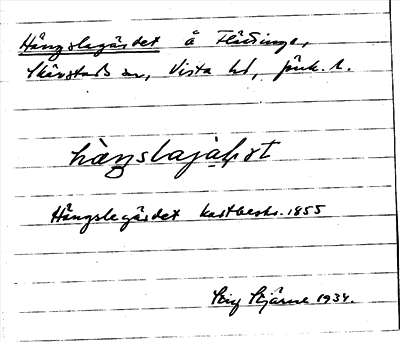 Hängslegärdet å Flättinge,
Skärstads sn, Vista hd, Jönk. l.
Hängslegärdet kartbeskr. 1855
Stig Stjärne 1934.